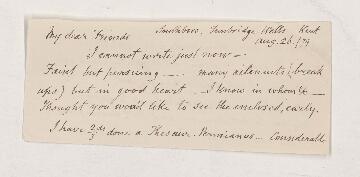 Southboro, Tunbridge Wells Kent
My dear Friends Aug. 26./79
I cannot write just now —
Faint but pursuing —. many ailments (break
ups) but in good heart — I know in whom &c —
Thought you would like to see the enclosed, early.
I have 2/3 ds done a Thesaur. Considerable